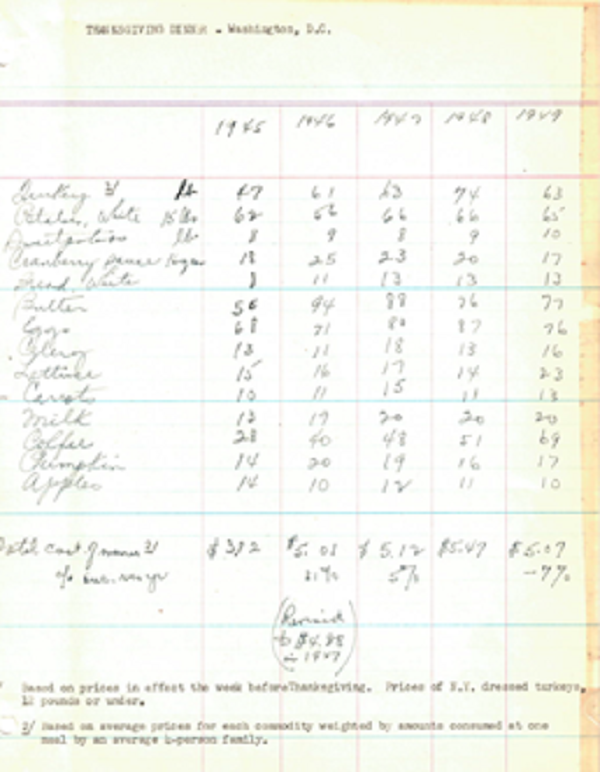 THANKSGIVING DINNER - Washington, D.C.
1945 1946 1947 1948 1949
Turkey 1/ lb 47 61 63 74 63
Potatoes, White 15 lbs 62 56 66 66 65
Sweetpotatoes lb 8 9 8 9 10
Cranberry sauce 18 25 23 20 17
Bread, White 8 11 13 13 13
Butter 50 94 88 76 77
Eggs 68 71 80 87 76
Celery 13 11 18 13 16
Lettuce 15 16 17 14 23
Carrots 10 11 15 11 13
Milk 13 19 20 20 20
Coffee 28 40 48 51 69
Pumpkin 14 20 19 16 17
Apples 14 10 12 11 10
Total cost of menu 2/ $3.82 $5.01 $5.12 $5.47 $5.07
% 5% -7%
(Revised
to $4.88
in 1947)
1/ Based on prices in effect the week beforeThanksgiving. Prices of N.Y. dressed turkeys,
12 pounds or under.
2/ Based on average prices for each commodity weighted by amounts consumed at one
meal by an average 4-person family.